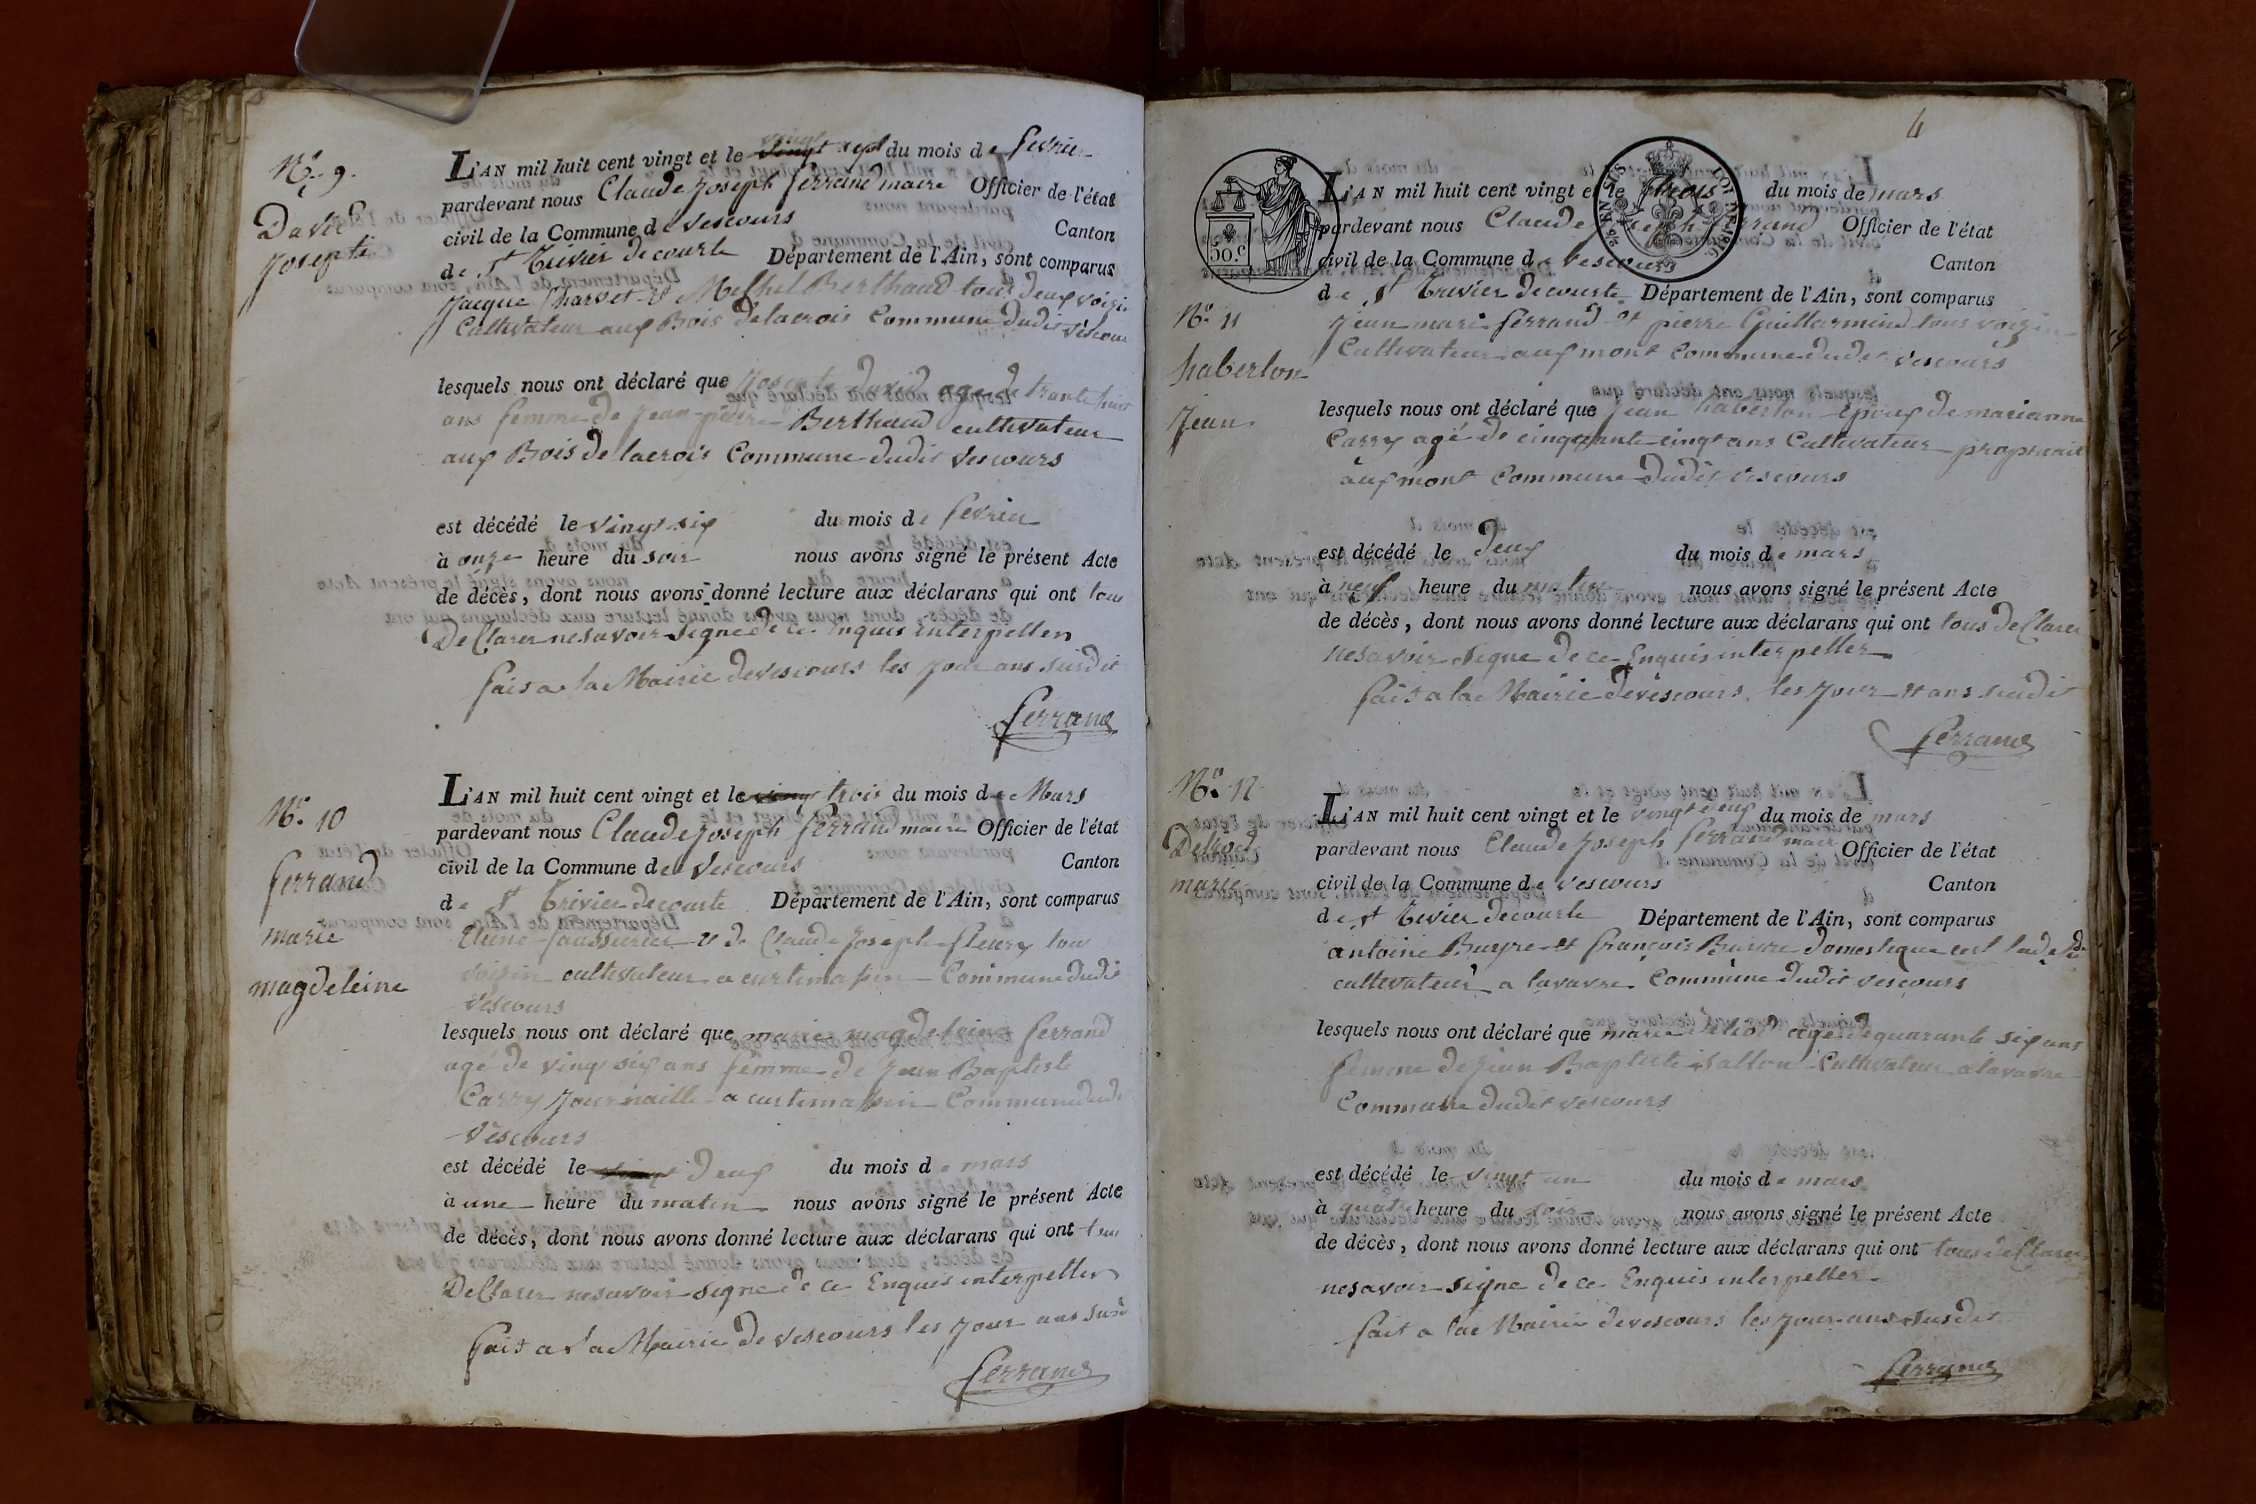 Nº. 9.
David
Josepte
L'AN mil huit cent vingt et le vingt sept du mois de fevrier
pardevant nous Claude Joseph ferrand maire Officier de l'état
civil de la Commune de vescours Canton
de St Trivier de courte Département de l'Ain, sont comparus
Jacque Charvet et Michel Berthaud tous deux voizin
Cultivateur aux Bois delacrois Commune dudit vescours
lesquels nous ont déclaré que Josepte david agee de trante huit
ans femme de jean pierre Berthaud cultivateur
aux Bois de lacrois Commune dudit vescours
est décédé le vingt six du mois de fevrier
à onze heure du soir nous avons signé le présent Acte
de décès, dont nous avons donné lecture aux déclarans qui ont tous
De Clarer ne savoir signe de ce enquis interpeller
fait a la Mairie de vescours les jour ans susdit
ferrand
Nº. 10
ferrand
marie
magdeleine
L'AN mil huit cent vingt et le trois du mois de Mars
pardevant nous Claude Joseph ferrand maire Officier de l'état
civil de la Commune de vescours Canton
de St Trivier de courte Département de l'Ain, sont comparus
et de Claude Joseph fleury tous
voizin cultivateur a curtimassin Commune dudit
vescours
lesquels nous ont déclaré que marie magdeleine ferrand
agé de vingt six ans femme de jean Baptiste
Carry journaille a curtimassin Commune dudit
vescours
est décédé le deux du mois de mars
à une heure du matin nous avons signé le présent Acte
de décès, dont nous avons donné lecture aux déclarans qui ont tous
De Clarer ne savoir signe de ce Enquis interpeller
fait a la Mairie de vescours les jour ans susdit
ferrand
4
50.C
EN SUS
LOI DE 1816
L'AN mil huit cent vingt et le trois du mois de mars
pardevant nous Claude Joseph ferrand Officier de l'état
civil de la Commune de vescours Canton
de St Trivier de courte Département de l'Ain, sont comparus
Nº. 11
haberlon
Jean
jean marie ferrand et pierre Guillarmind tous voizin
Cultivateur aux mont Commune dudit vescours
lesquels nous ont déclaré que jean haberlon epoux de marianne
Carry agé de cinquante cinq ans Cultivateur propriaite
aux mont Commune dudit vescours
est décédé le deux du mois de mars
à neuf heure du matin nous avons signé le présent Acte
de décès, dont nous avons donné lecture aux déclarans qui ont tous de Clarer
ne savoir signe de ce Enquis interpeller
fait a la Mairie de vescours les jour et ans susdit
ferrand
Nº. 12
marie
L'AN mil huit cent vingt et le vingt deux du mois de mars
pardevant nous Claude Joseph ferrand maire Officier de l'état
civil de la Commune de vescours Canton
de St Trivier de courte Département de l'Ain, sont comparus
antoine Buyre et françois Buyre domestique
cultivateur a lavavre Commune dudit vescours
lesquels nous ont déclaré que marie agé de quarante six ans
femme de jean Baptiste Cultivateur a lavavre
Commune dudit vescours
est décédé le vingt un du mois de mars
à quatre heure du soir nous avons signé le présent Acte
de décès, dont nous avons donné lecture aux déclarans qui ont tous de Clarer
ne savoir signe de ce Enquis interpeller
fait a la Mairie de vescours les jour ans susdit
ferrand